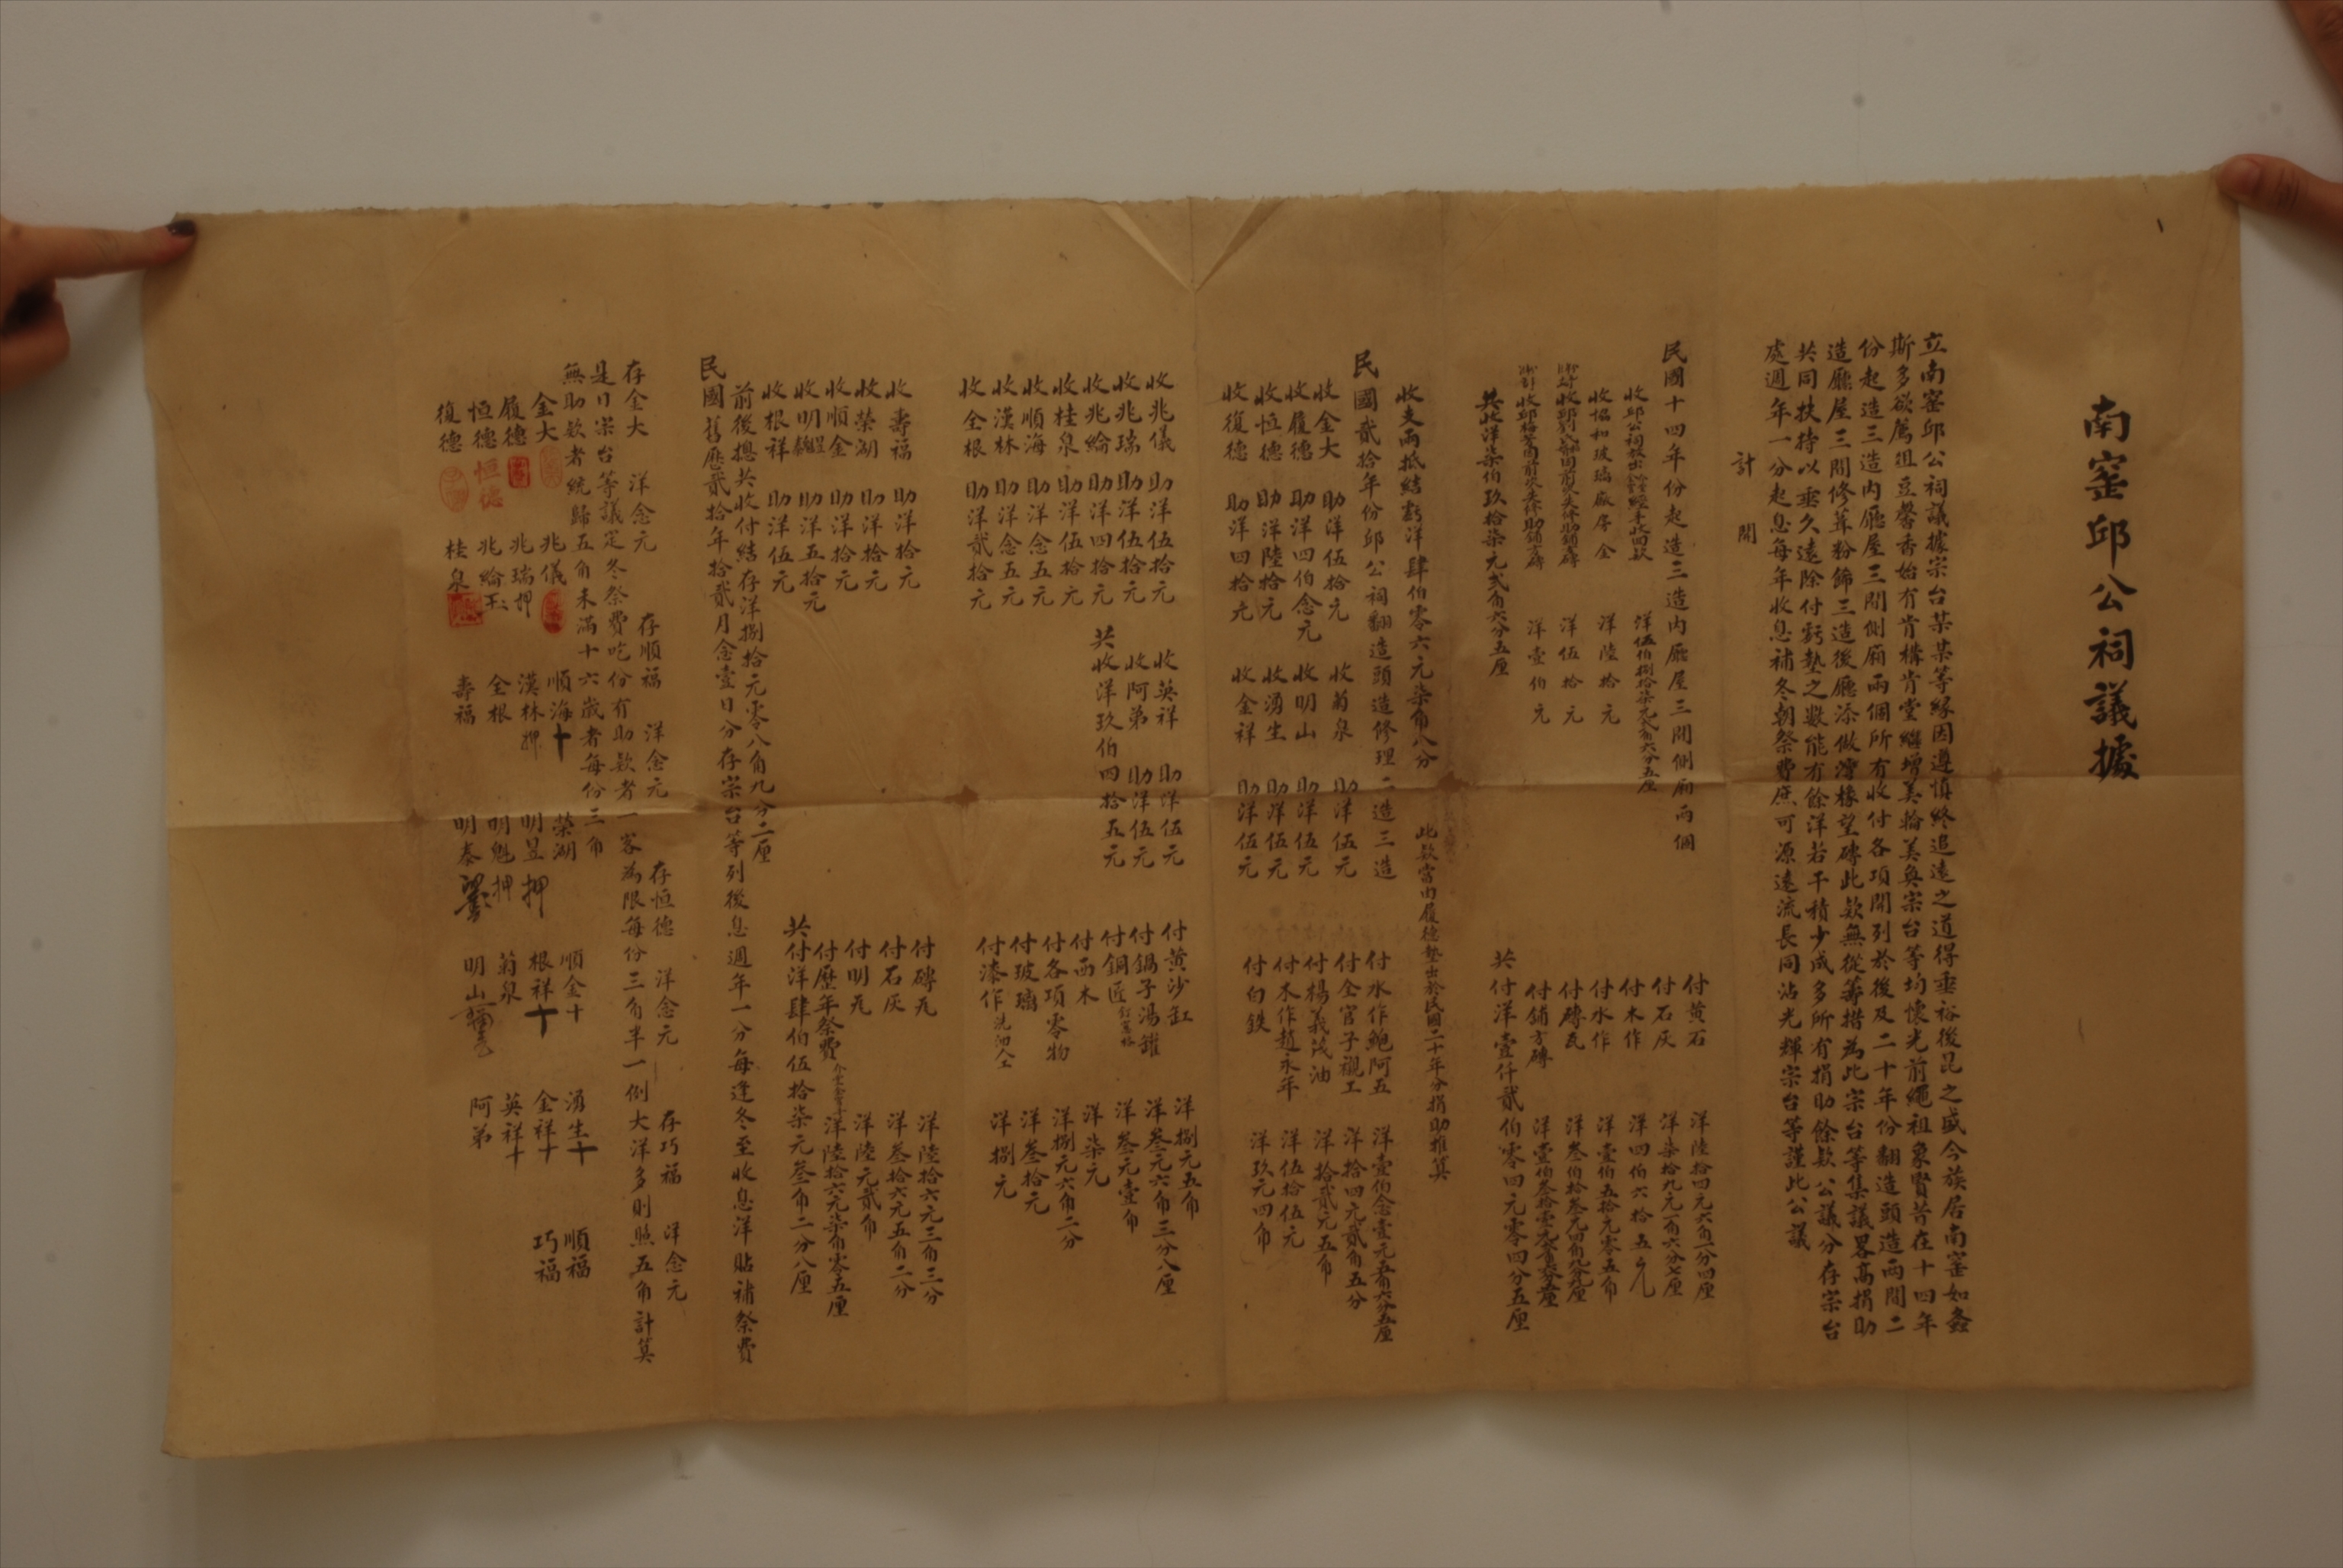 南窰邱公祠議據
立南窑邱公祠議據宗台某某等緣因遵慎終追遠之道得垂裕後昆之盛今族居南窰如螽
斯多欲薦俎豆馨香始有肯構肯堂繼增美輪美奐宗台等均懷光前繩祖象賢昔在十四年
份起造三造內廰屋三間側廂兩個所有收付各項開列於後及二十年份翻造頭造兩間二
造廳屋三間修葺粉飾三造後廳添做澪椽望磚此欵無從籌措為此宗台等集議畧高捐助
共同扶持以垂久遠除付虧墊之數能有餘洋若干積少成多所有捐助餘欵公議分存宗台
處週年一分起息每年收息補冬朝祭費庶可源遠流長同沾光輝宗台等謹此公議
計開
民國十四年份起造三造內廰屋三間側廂兩個
洋伍伯捌拾柒元八角六分五厘
收協和玻璃廠房金 洋陸拾元
洋伍拾元
洋壹伯元
共收洋柒伯玖拾柒元弍角六分五厘
付黄石 洋陸拾四元六角一分四厘
付石灰 洋柒拾九元一角六分七厘
付木作 洋四伯六拾五元
付水作 洋壹伯五拾元零五角
付磚瓦
付鋪方磚
共付洋壹仟貳伯零四元零四分五厘
收支兩抵結虧洋肆伯零六元柒角八分 此欵當由履德墊出於民國二十年分捐助推算
民國貳拾年份邱公祠翻造頭造修理二造三造
收金大 助洋伍拾元
收履德 助洋四伯念元
收恒德 助洋陸拾元
收復德 助洋四拾元
收菊泉 助洋伍元
收明山 助洋伍元
收湧生 助洋伍元
收金祥 助洋伍元
付水作鮑阿五 洋壹伯念壹元五角六分五厘
付全官子襯工 洋拾四元貳角五分
付楊義茂油 洋拾貳元五角
付木作趙永年 洋伍拾伍元
付白鉄 洋玖元四角
收兆儀 助洋伍拾元
收兆瑞 助洋伍拾元
收兆綸 助洋四拾元
收桂泉 助洋伍拾元
收順海 助洋念五元
收漢林 助洋念五元
收全根 助洋貳拾元
收英祥 助洋伍元
收阿弟 助洋伍元
共收洋玖伯四拾五元
付黄沙缸 洋捌元五角
付鍋子湯罐 洋叁元六角三分八厘
付銅匠 洋叁元壹角
付西木 洋柒元
付各項零物 洋捌元六角二分
付玻璃 洋叁拾元
付漆作 洋捌元
收壽福 助洋拾元
收榮湖 助洋拾元
收順金 助洋拾元
收明 助洋五拾元
收根祥 助洋伍元
付磚瓦 洋陸拾六元三角三分
付石灰 洋叁拾六元五角二分
付明瓦 洋陸元貳角
付歷年祭費 洋陸拾六元柒角零五厘
共付洋肆伯伍拾柒元叁角二分八厘
前後揔共收付結存洋捌拾元零八角九分二厘
民國舊歷貳拾年拾貳月念壹日分存宗台等列後息週年一分每逢冬至收息洋貼補祭費
存金大 洋念元 存順福 洋念元 存恒德 洋念元 存巧福 洋念元
是日宗台等議定冬祭費吃份有助欵者一客為限每份三角半一例大洋多則照五角計算
無助欵者統歸五角未滿十六歲者每份三角
金大 兆儀 順海十 榮湖 順金十 湧生十 順福
履德 兆瑞押 漢林押 明昱押 根祥十 金祥十 巧福
恒德 恒德 兆綸 全根 明魁押 菊泉 英祥十
復德 桂泉 壽福 明泰 明山 阿弟